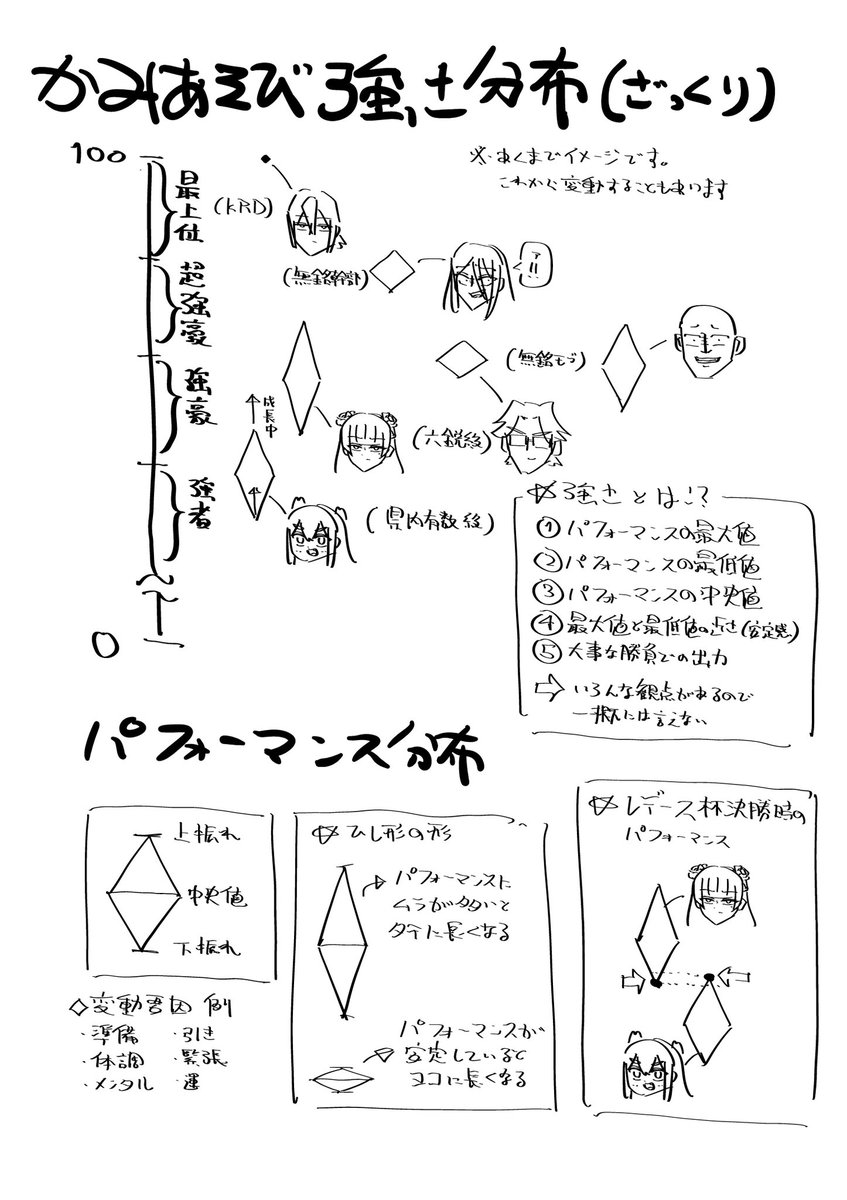 かみあそび強さ分布(ざっくり)
※あくまでイメージです。
これから変動することもあります
100
最上位
(KRD)
超強豪
(無銘幹部)
強豪
(無銘モブ)
成長中
(六鋭後)
強者
(県内有数後)
0
強さとは!?
①パフォーマンスの最大値
②パフォーマンスの最低値
③パフォーマンスの中央値
④最大値と最低値の近さ(安定感)
⑤大事な勝負での出力
⇨いろんな観点があるので
一概には言えない
パフォーマンス分布
上振れ
中央値
下振れ
◇変動要因 例
・準備 ・引き
・体調 ・緊張
・メンタル ・運
ひし形の形
パフォーマンスに
ムラが多いと
タテに長くなる
パフォーマンスが
安定していると
ヨコに長くなる
レデース杯決勝時の
パフォーマンス